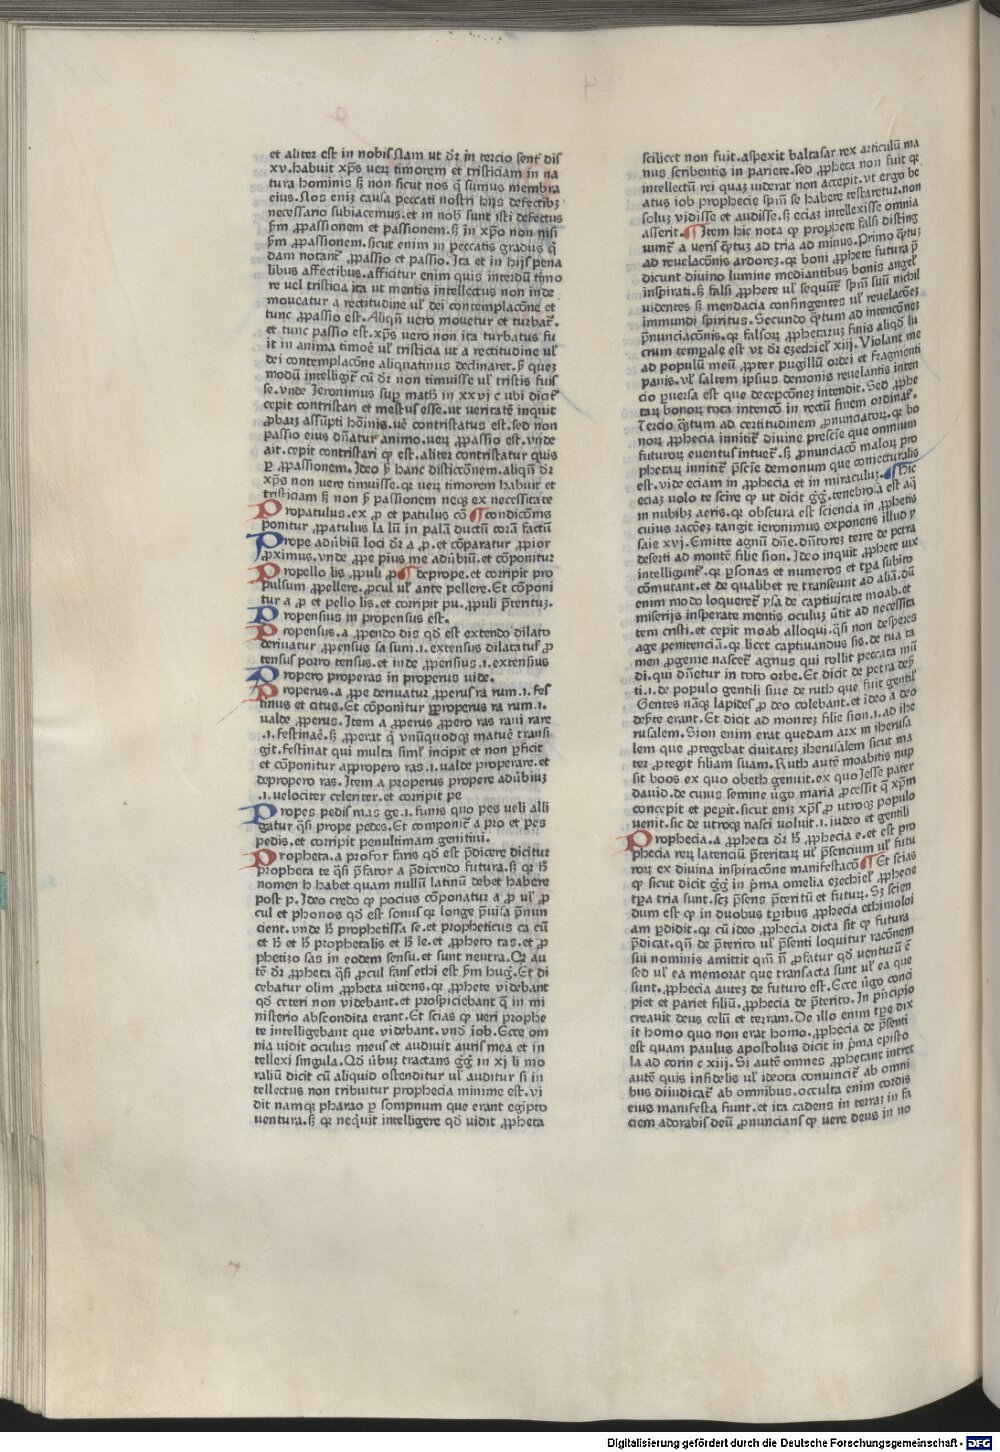 et aliter est in nobis. Nam ut dr̄ in tercio sent᷑ dis
xv. habuit xp̄s veꝝ timorem et tristiciam in na
tura hominis ſꝫ non sicut nos q̄ sumus membra
eius. Nos enīꝫ causa peccati nostri hijs defectibꝫ
necessario subiacemus. et in nob̄ sunt isti defectus
ẜm ꝓpassionem et passionem. ſꝫ in xp̄o non nisi
ẜm ꝓpassionem. sicut enim in peccatis gradus q̄
dam notant᷑ ꝓpassio et passio. Ita et in hijs pena
libus affectibus. afficitur enim quis interdū timo
re vel tristicia ita ut mentis intellectus non inde
moueatur a rectitudine ul̄ dei contemplac̄one et
tunc ꝓpassio est. Aliqn̄ uero mouetur et turbat᷑.
et tunc passio est. xp̄s uero non ita turbatus fu
it in anima timoē ul̄ tristicia ut a rectitudine ul̄
dei contemplac̄one aliquatinus declinaret. ẜ queꝫ
modū intelligit᷑ cū dr̄ non timuisse ul̄ tristis fuis
se. vnde Jeronimus suꝑ math̄ in xxvi c ubi dicit᷑
cepit contristari et mestus esse. ut veritatē inquit
ꝓbaꝫ assūpti hōinis. uē contristatus est. sed non
passio eius dn̄atur animo. ueꝝ ꝓpassio est. vnde
ait. cepit contristari ꝙ est. aliter contristatur quis
ꝑ ꝓpassionem. Ideo ẜ hanc distictōnem. aliqn̄ dr̄
xp̄s non vere timuisse. qꝛ veꝝ timorem habuit et
tristiciam ſꝫ non ẜ passionem neqꝫ ex necessitate
Propatulus. ex ꝓ et patulus cō ¶ condicōnis
ponitur ꝓpatulus la lū in palā ductū corā factū
Prope adūbiū loci dr̄ a ꝓ. et cōparatur ꝓpior
ꝓximus. vnde ꝓpe pius me adūbiū. et cōponitur
Propello lis ꝓpuli ꝓ ¶ deprope. et corripit pro
pulsum ꝓpellere. ꝓcul ul̄ ante pellere. Et cōponi
tur a ꝓ et pello lis. et corripit pu. ꝓpuli p̄teritūꝫ.
Propensius in propensus est.
Propensus. a ꝓpendo dis qd̄ est extendo dilato
deriuatur ꝓpensus sa sum .i. extensus dilatatus ꝓ
tensus porro tensus. et inde ꝓpensius .i. extensius
Propero properas in properus vide.
Properus. a ꝓpe deriuatur ꝓperus ra rum .i. fes
tinus et citus. Et cōponitur ꝑproperus ra rum .i.
ualde ꝓperus. Item a ꝓperus ꝓpero ras raui rare
.i. festinaē. ſꝫ ꝓperat q̄ vnūquodqꝫ matuē transi
git. festinat qui multa siml̄ incipit et non ꝑficit
et cōponitur appropero ras .i. valde properare. et
depropero ras. Item a properus propere adūbiuꝫ
.i. velociter celeriter. et corripit pe
Propes pedis mas ge .i. funis quo pes veli alli
gatur q̄si prope pedes. Et componit᷑ a pro et pes
pedis. et corripit penultimam genitiui.
Propheta. a profor faris qd̄ est p̄dicere dicitur
propheta te q̄si p̄fator a p̄dicendo futura. ſꝫ qꝛ h̄
nomen h habet quam nullū latinū debet habere
post p. Ideo credo ꝙ pocius cōponatur a ꝓ ul̄ ꝓ
cul et phonos qd̄ est sonus qꝛ longe p̄uisa p̄nun
cient. vnde h̄ prophetissa se. et propheticus ca cū
et h̄ et h̄ prophetalis et h̄ le. et ꝓpheto tas. et ꝓ
phetizo sas in eodem sensu. et sunt neutra. Qꝛ au
tē dr̄ ꝓpheta q̄si ꝓcul fans ethi est ẜm hug̉. Et di
cebatur olim ꝓpheta videns. qꝛ ꝓphete videbant
qd̄ ceteri non videbant. et prospiciebant q̄ in mi
nisterio abscondita erant. Et scias ꝙ veri prophe
te intelligebant que videbant. vnd̄ iob. Ecce om
nia vidit oculus meus et audiuit auris mea et in
tellexi singula. Qd̄ ūbuꝫ tractans gḡ in xj li mo
raliū dicit cū aliquid ostenditur ul̄ auditur si in
tellectus non tribuitur prophecia minime est. vi
dit namqꝫ pharao ꝑ sompnum que erant egipto
ventura. ſꝫ qꝛ neq̄uit intelligere qd̄ vidit ꝓpheta
scilicet non fuit. aspexit baltasar rex articulū ma
nus scribentis in pariete. sed ꝓpheta non fuit qꝛ
intellectū rei quaꝫ uiderat non accepit. vt ergo be
atus iob prophecie sp̄m se habere testaretur. non
soluꝫ vidisse et audisse. ſꝫ eciaꝫ intellexisse omnia
asserit. ¶ Item hic nota ꝙ prophete falsi disting
uunt᷑ a veris q̄tuꝫ ad tria ad minus. Primo q̄tuꝫ
ad reuelacōnis ardoreꝫ. qꝛ boni ꝓphete futura p̄
dicunt diuino lumine mediantibus bonis angel̄
inspirati. ſꝫ falsi ꝓphete ul̄ sequūt᷑ sp̄m suū nichil
videntes ſꝫ mendacia confingentes ul̄ reuelacōeꝫ
immundi spiritus. Secundo q̄tum ad intencōneꝫ
p̄nunciacōnis. qꝛ falsoꝝ ꝓphetaruꝫ finis aliqd̄ lu
crum temꝑale est vt dr̄ ezechiel̄ xiij. Violant me
ad populū meū ꝓpter pugillū ordei et fragmenti
panis. vl̄ saltem ipsius demonis reuelantis inten
cio ꝑuersa est que decepcōneꝫ intendit. Sed ꝓphe
taꝝ bonoꝝ tota intencō in rectū finem ordinat᷑.
Tercio q̄tum ad certitudinem ꝓnunciatoꝝ. qꝛ bo
noꝝ ꝓphecia innitit᷑ diuine presc̄ie que omnium
futuroꝝ euentus intuet᷑. ſꝫ ꝓnunciacō maloꝝ pro
phetaꝝ innitit᷑ p̄sc̄ie demonum que coniecturalis
est. vide eciam in ꝓphecia et in miraculuꝫ. ¶ Hic
eciaꝫ uolo te scire ꝙ ut dicit gḡ. tenebrosa est aq̄
in nubibꝫ aeris. qꝛ obscura est sciencia in ꝓphetis
cuius racōeꝫ tangit ieronimus exponens illud y
saie xvj. Emitte agnū dn̄e. dn̄toreꝫ terre de petra
deserti ad montē filie sion. Ideo inquit ꝓphete uix
intelligunt᷑. qꝛ ꝑsonas et numeros et tꝑa subito
cōmutant. et de qualibet re transeunt ad aliā. dū
enim modo loqueret᷑ ysā de captiuitate moab. et
miserijs insperate mentis oculuꝫ ūtit ad necessita
tem cristi. et cepit moab alloqui. q̄si non desperes
age penitenciā. qꝛ licet captiuandus sis. de tua ta
men ꝓgenie nascet᷑ agnus qui tollit peccata mū
di. qui dn̄etur in toto orbe. Et dicit de petra desˀ
ti .i. de populo gentili siue de ruth que fuit gentil̄
Gentes nāqꝫ lapides ꝓ deo colebant. et ideo a deo
desˀte erant. Et dicit ad monteꝫ filie sion .i. ad ihe
rusalem. Sion enim erat quedam arx in iherusa
lem que ꝓtegebat ciuitateꝫ iherusalem sicut ma
ter ꝓtegit filiam suam. Ruth autē moabitis nup
sit boos ex quo obeth genuit. ex quo Jesse pater
dauid. de cuius semine ūgo maria ꝓcessit q̄ xp̄m
concepit et peꝑit. sicut enīꝫ xp̄s ꝓ utroqꝫ populo
uenit. sic de utroqꝫ nasci voluit .i. iudeo et gentili
Prophecia. a ꝓpheta dr̄ h̄ ꝓphecia e. et est pro
phecia reꝝ latenciū p̄teritaꝝ ul̄ p̄sencium ul̄ futu
roꝝ ex diuina inspiracōne manifestacō ¶ Et scias
ꝙ sicut dicit gḡ in p̄ma omelia ezechiel̄ ꝓphecie
tꝑa tria sunt. scꝫ p̄sens p̄teritū et futuꝝ. Sꝫ scien
dum est ꝙ in duobus tꝑibus ꝓphecia ethimoloi
am ꝑdidit. qꝛ cū ideo ꝓphecia dicta sit ꝙ futura
p̄dicat. qn̄ de p̄terito ul̄ p̄senti loquitur racōnem
sui nominis amittit qm̄ n̄ ꝓfatur qd̄ venturū ē
sed ul̄ ea memorat que transacta sunt ul̄ ea que
sunt. ꝓphecia auteꝫ de futuro est. Ecce ūgo conci
piet et pariet filiū. ꝓphecia de p̄terito. In p̄ncipio
creauit deus celū et terram. De illo enim tꝑe dix
it homo quo non erat homo. ꝓphecia de p̄senti
est quam paulus apostolus dicit in p̄ma episto
la ad corin c xiij. Si autē omnes ꝓphetant intret
autē quis infidelis ul̄ ideota conuincit᷑ ab omni
bus diiudicat᷑ ab omnibus. occulta enim cordis
eius manifesta fiunt. et ita cadens in terraꝫ in fa
ciem adorabis deū ꝓnuncians ꝙ vere deus in no
Digitalisierung gefördert durch die Deutsche Forschungsgemeinschaft - DFG